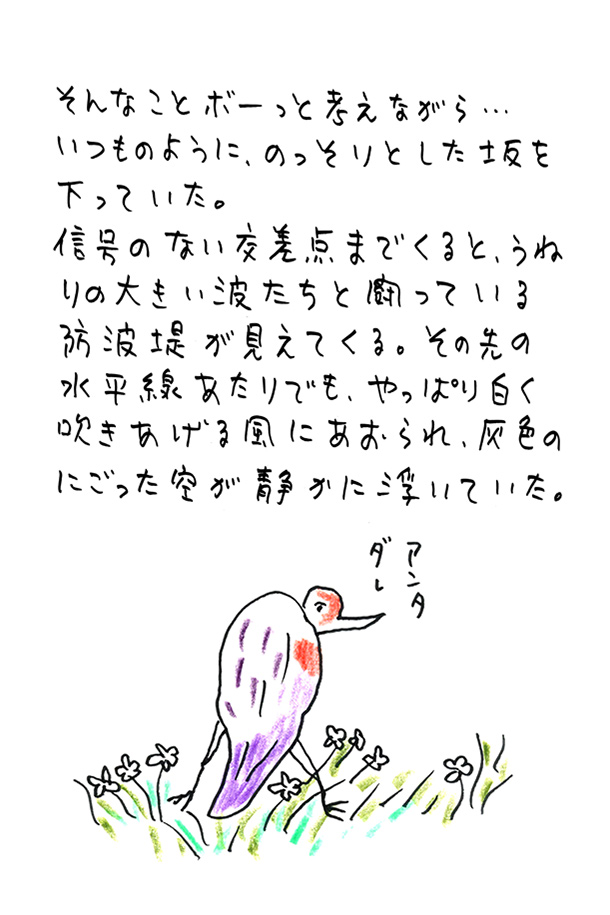 そんなことボーっと考えながら…
いつものように、のっそりとした坂を
下っていた。
信号のない交差点までくると、うね
りの大きい波たちと闘っている
防波堤が見えてくる。その先の
水平線あたりでも、やっぱり白く
吹きあげる風にあおられ、灰色の
にごった空が静かに浮いていた。
アンタ
ダレ